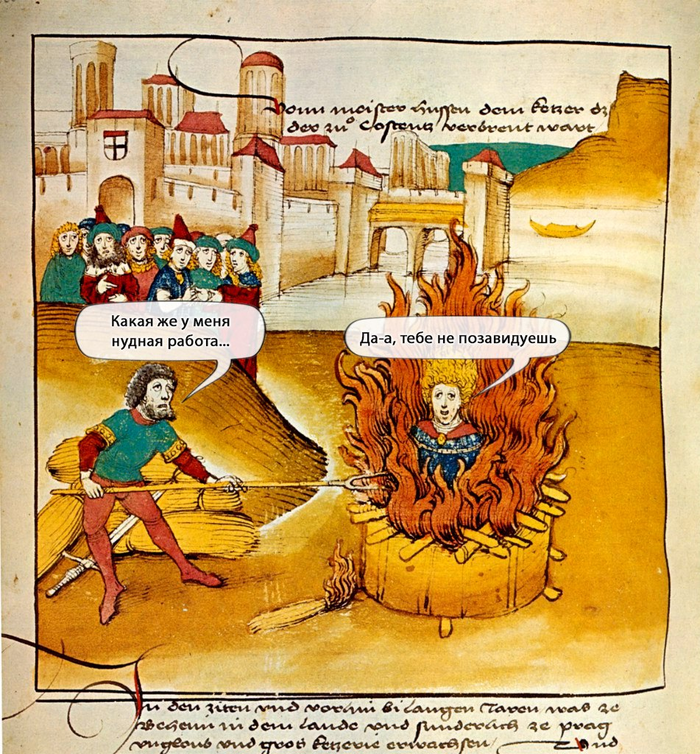 Vonn meister hussen dem ketzer dz
der zuͦ Costentz verbrent wart
Какая же у меня
нудная работа...
Да-а, тебе не позавидуешь
In den ziten vnd vor bi langen Jaren was ze
Behemi in dem lande vnd sunderlich ze prag
vngloub vnd gross ketzerie erwachsen